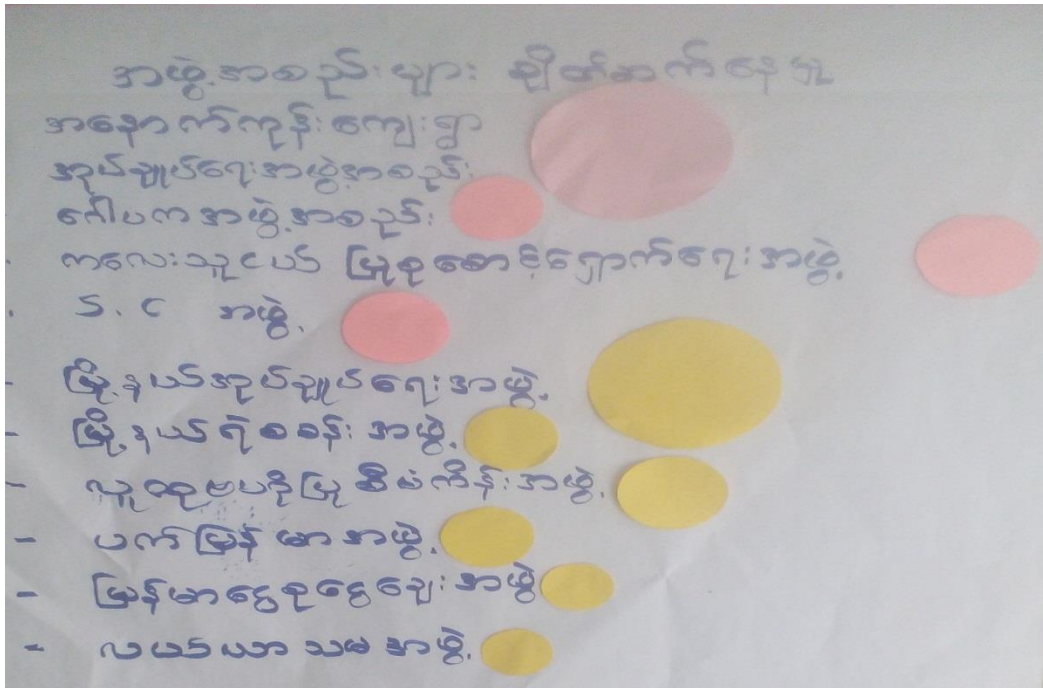 အဖွဲ့အစည်းများ ချိတ်ဆက်နေမှု
အနောက်ကုန်းကျေးရွာ
အုပ်ချုပ်ရေးအဖွဲ့အစည်း
ဂေါပကအဖွဲ့အစည်း
ကလေးသူငယ် ပြုစုစောင့်ရှောက်ရေးအဖွဲ့
S. C အဖွဲ့
- မြို့နယ်အုပ်ချုပ်ရေးအဖွဲ့
- မြို့နယ်ရဲစခန်းအဖွဲ့
- လူထုဗဟိုပြုစီမံကိန်းအဖွဲ့
- ပက်မြန်မာအဖွဲ့
- မြန်မာငွေစုငွေချေးအဖွဲ့
- လယ်ယာသမအဖွဲ့